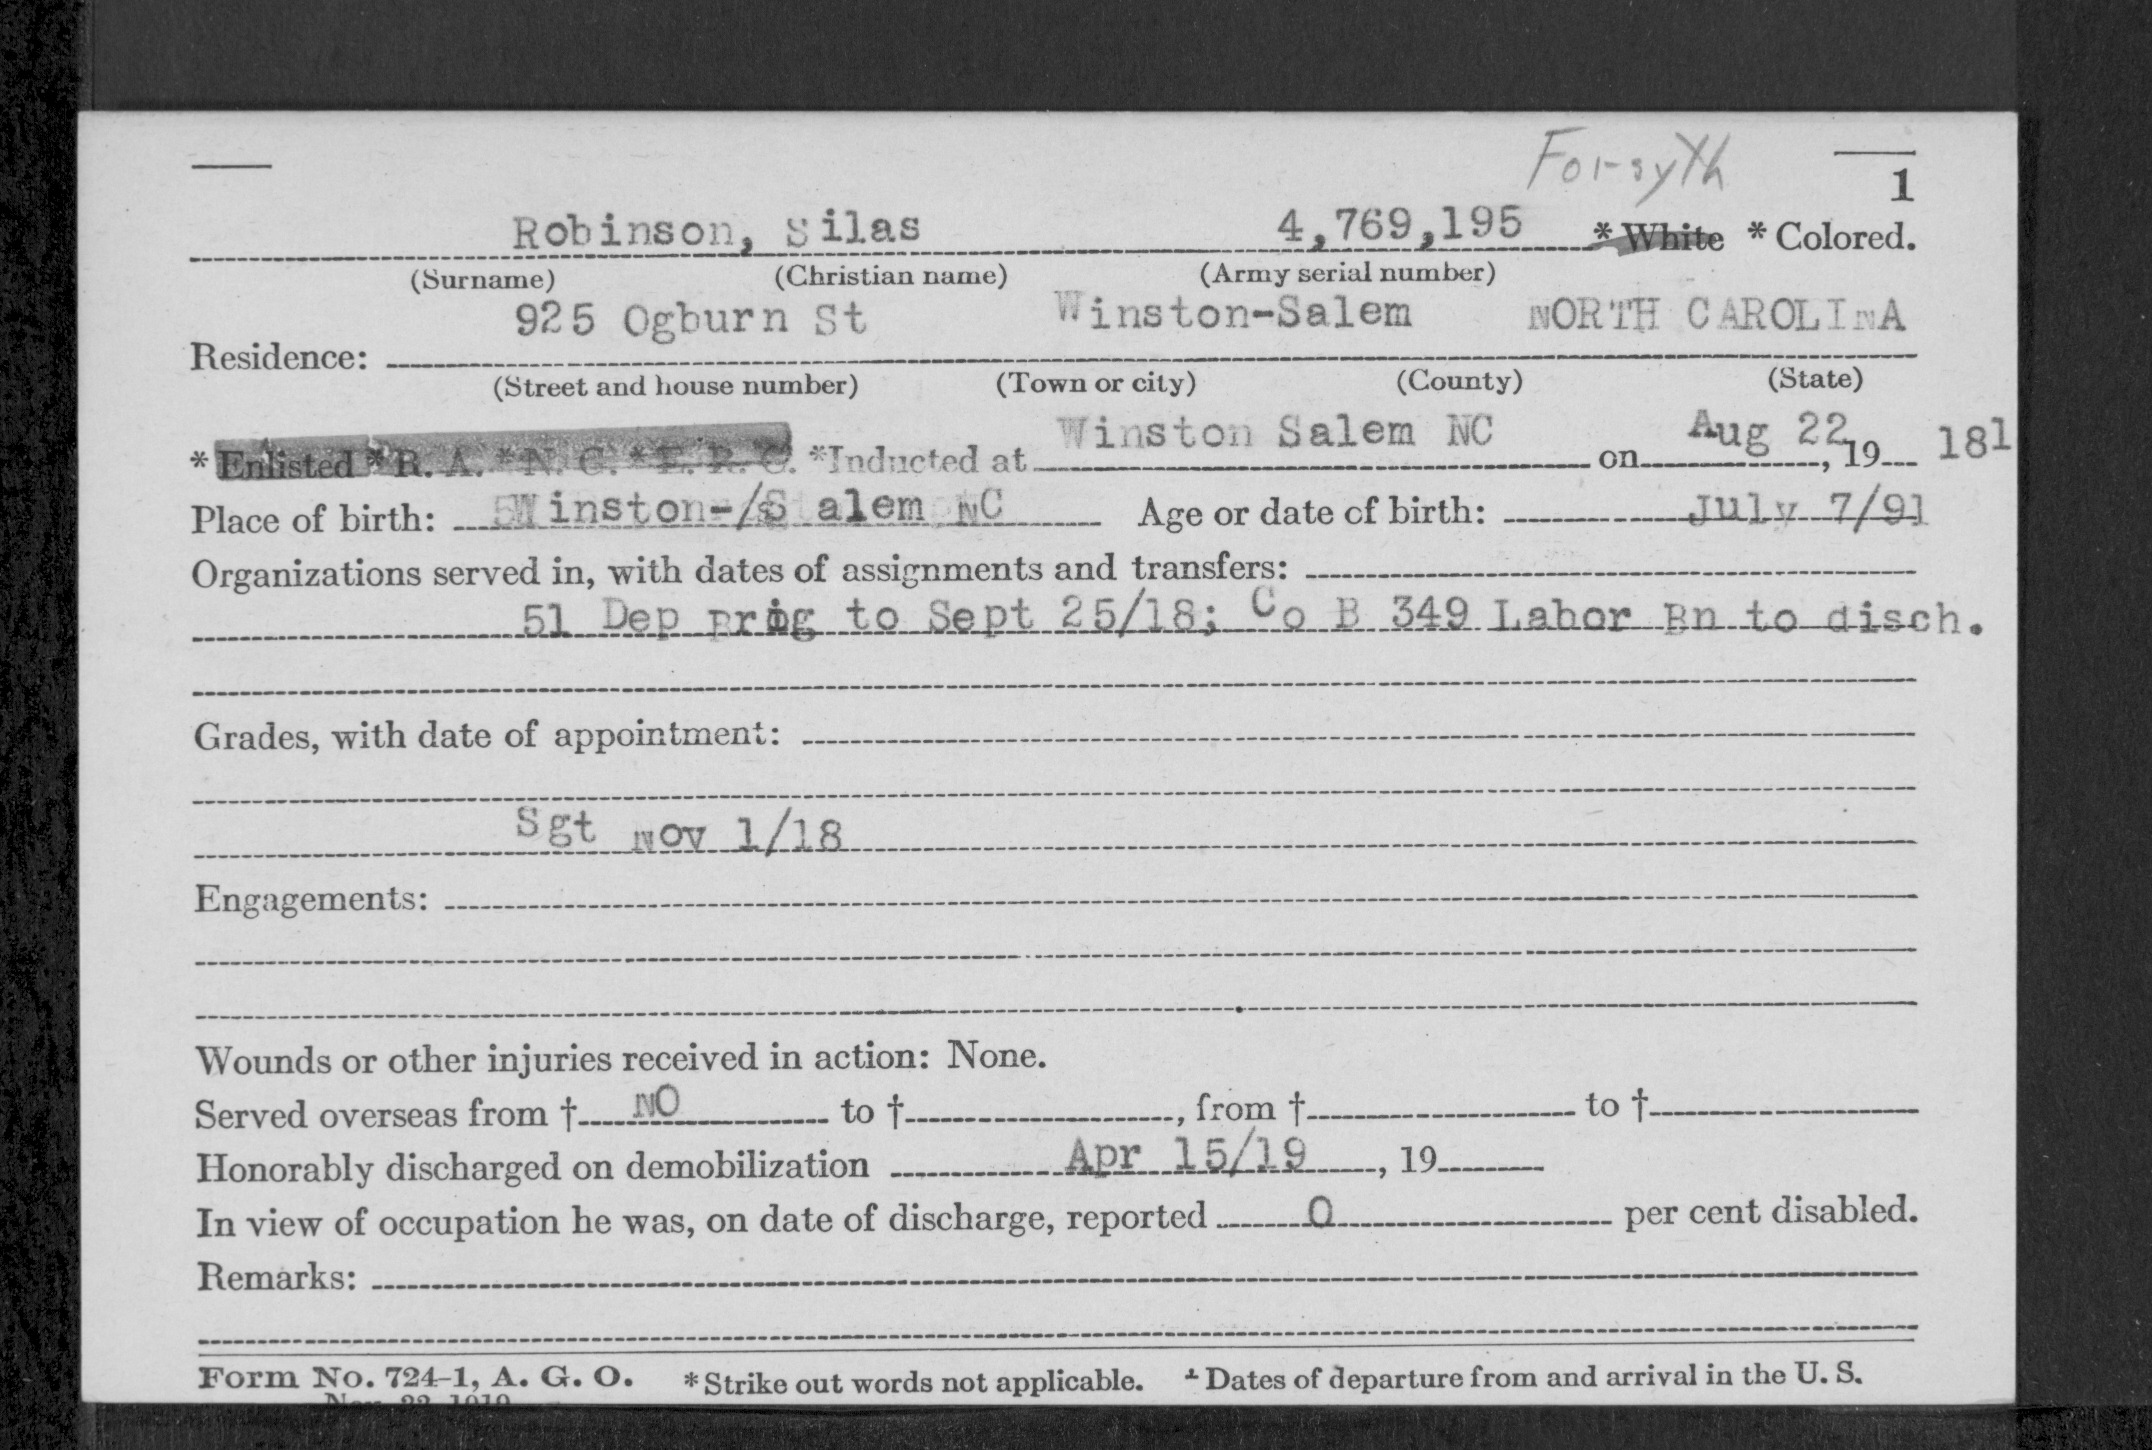 Forsyth
1
Robinson, Silas 4,769,195 * White * Colored.
(Surname) (Christian name) (Army serial number)
925 Ogburn St Winston-Salem NORTH CAROLINA
Residence:
(Street and house number) (Town or city) (County) (State)
Winston Salem NC Aug 22 181
* Enlisted * R. A. * N. G. * E. R. C. *Inducted at on , 19
Place of birth: Winston-/Salem NC Age or date of birth: July 7/91
Organizations served in, with dates of assignments and transfers:
51 Dep Brig to Sept 25/18; Co B 349 Labor Bn to disch.
Grades, with date of appointment:
Sgt Nov 1/18
Engagements:
Wounds or other injuries received in action: None.
Served overseas from † NO to † , from † to †
Honorably discharged on demobilization Apr 15/19 , 19
In view of occupation he was, on date of discharge, reported 0 per cent disabled.
Remarks:
Form No. 724-1, A. G. O. * Strike out words not applicable. † Dates of departure from and arrival in the U. S.